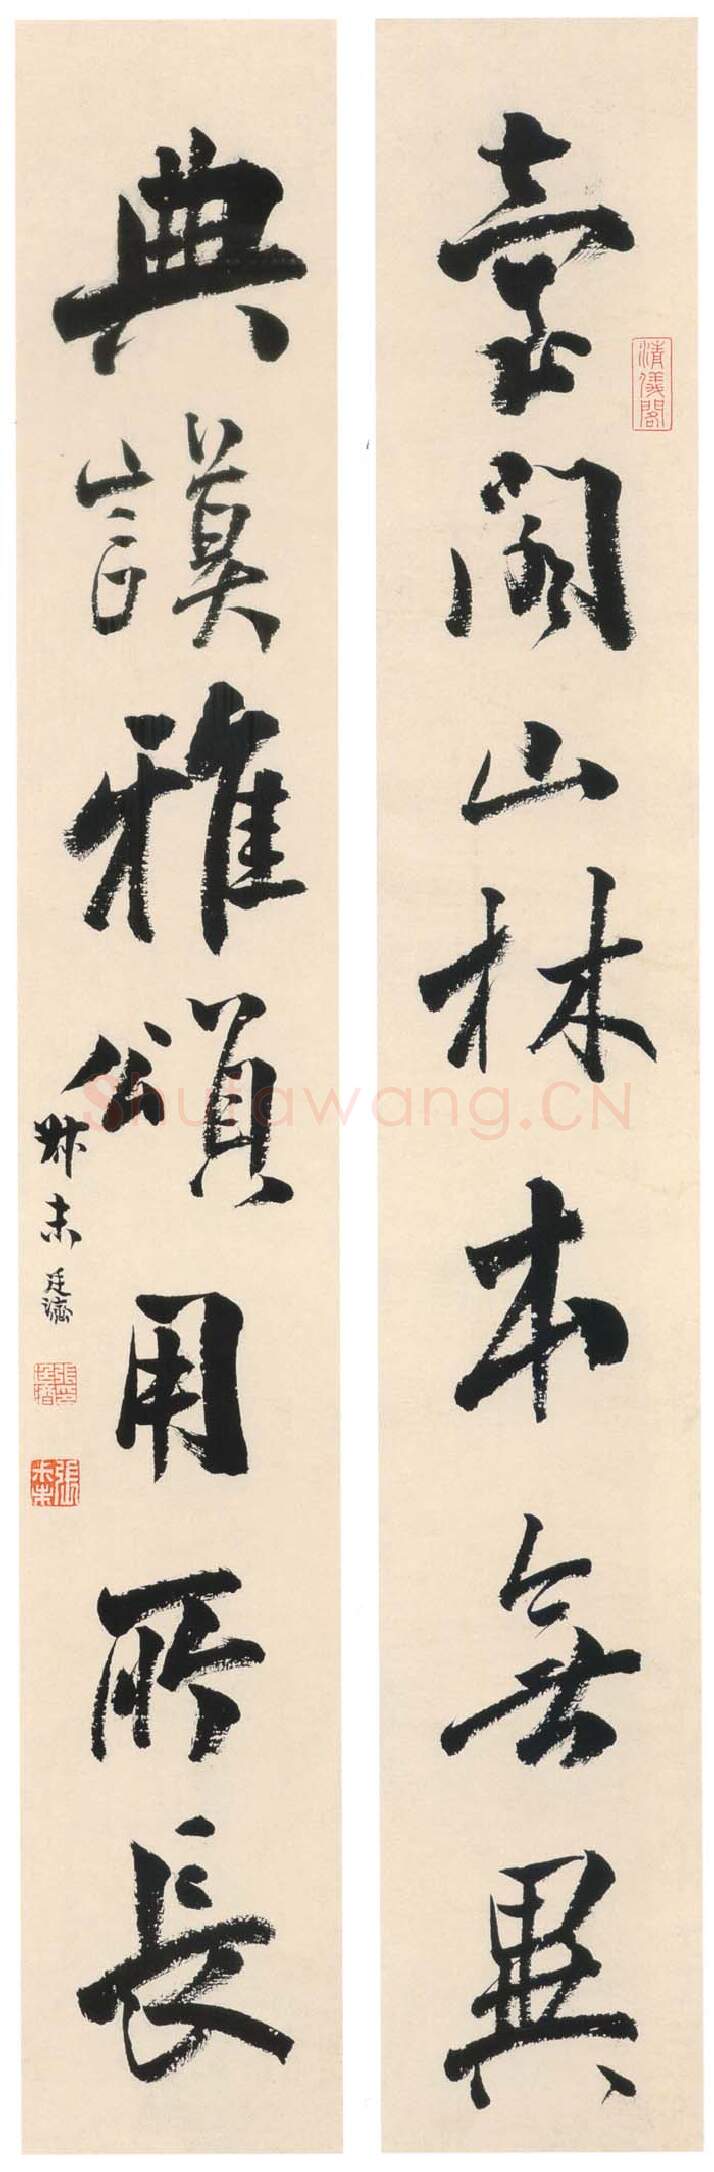 臺閣山林本無異
清儀閣
典謨雅頌用所長
叔未廷濟
張廷濟印
張叔未
Shufawang.CN